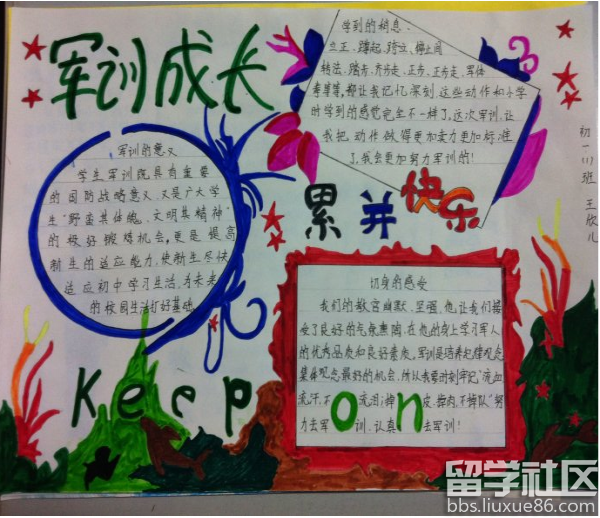 军训成长
学到的稍息、
立正、蹲起、跨立、停止间
转法、踏步、齐步走、正步、正步走、军体
拳等等,都让我记忆深刻这些动作和小学
时学到的感觉完全不一样了,这次军训,让
我把动作做得更加卖力更加标准
了,我会更加努力军训的!
初一(1)班 王欣儿
军训的意义
学生军训既具有重要
的国防战略意义,又是广大学
生“野蛮其体魄、文明其精神”
的极好锻炼机会,更是提高
新生的适应能力,使新生尽快
适应初中学习生活,为未来
的校园生活打好基础
累并快乐
切身的感受
我们的教官幽默、坚强,他让我们接
受了良好的气氛熏陶,在他的身上学习军人
的优秀品质和良好素质,军训是培养纪律观念
集体观念最好的机会,所以我要时刻牢记“流血
流汗,不流泪;掉皮、掉肉,不掉队”努
力去军训、认真去军训!
Keep on
留学社区
bbs.liuxue86.com